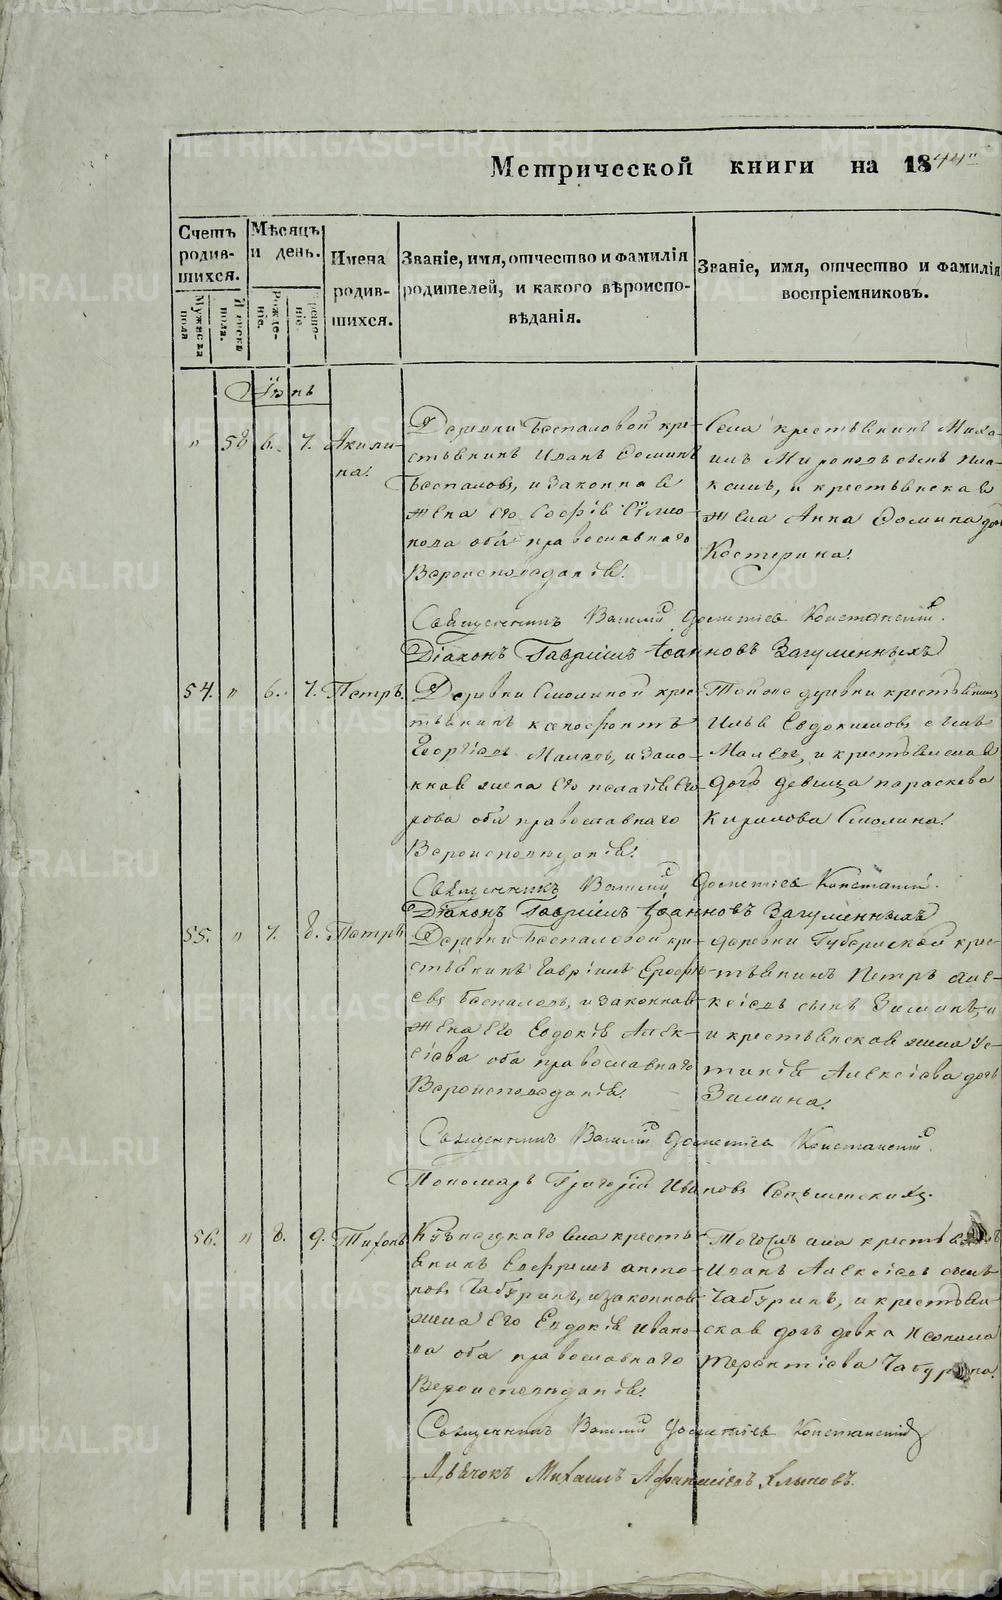 Метрической книги на 1844
Счетъ родив-шихся.
Мужеска пола
Женска пола.
Мѣсяцъ и день.
Рожде-ніе.
Креще-ніе.
Имена родив-шихся.
Званіе, имя, отчество и фамилія
родителей, и какого вѣроиспо-
вѣданія.
Званіе, имя, отчество и фамилія
воспріемниковъ.
Іюнь
" 58 6. 7. Акили-
на.
Деревни Беспаловой кре-
стьянинъ Иванъ
Беспаловъ, и законная
жена его Софія Симео-
нова оба православнаго
Вероисповеданія.
Села крестьянинъ Миха-
илъ сынъ
и крестьянская
жена Анна Фомина дочь
Костерина.
Священникъ Василий Дометіевъ
Діаконъ Гавріилъ Іоанновъ Загуменныхъ
54. " 6. 7. Петръ.
Деревни Смолиной крес-
тьянинъ Ксенофонтъ
Георгіевъ и зако-
нная жена его Пелагія Его-
рова оба православнаго
Вероисповѣданія.
Тойже деревни крестьянинъ
Илья Евдокимовъ сынъ
и крестьянская
дочь девица Параскева
Кирилова Смолина.
Священникъ Василий Дометіевъ
Діаконъ Гавріилъ Іоанновъ Загуменныхъ
55. " 7. 8. Петръ
Деревни Беспаловой кре-
стьянинъ Гавріилъ Ерофе-
евъ Беспаловъ, и законная
жена его Евдокія Алек-
сіева оба православнаго
Вероисповеданія.
деревни Губерской крес-
тьянинъ Петръ Але-
ксіевъ сынъ Зиминъ, и
крестьянская жена Ус-
тинія Алексіева дочь
Зимина.
Священникъ Василий Дометіевъ
Пономарь Григорій Ивановъ
56. " 8. 9. Тихонъ
села кресть-
янинъ Ефремъ Анто-
новъ Чабуринъ, и законная
жена его Евдокія Ивано-
ва оба православнаго
Вероисповѣданія.
Тогожъ села крестьянинъ
Иванъ Алексіевъ сынъ
Чабуринъ, и крестьян-
ская дочь девка
Терентіева Чабурина.
Священникъ Василий Дометіевъ
Дьячокъ Михаилъ Афанасіевъ
METRIKI.GASO-URAL.RU